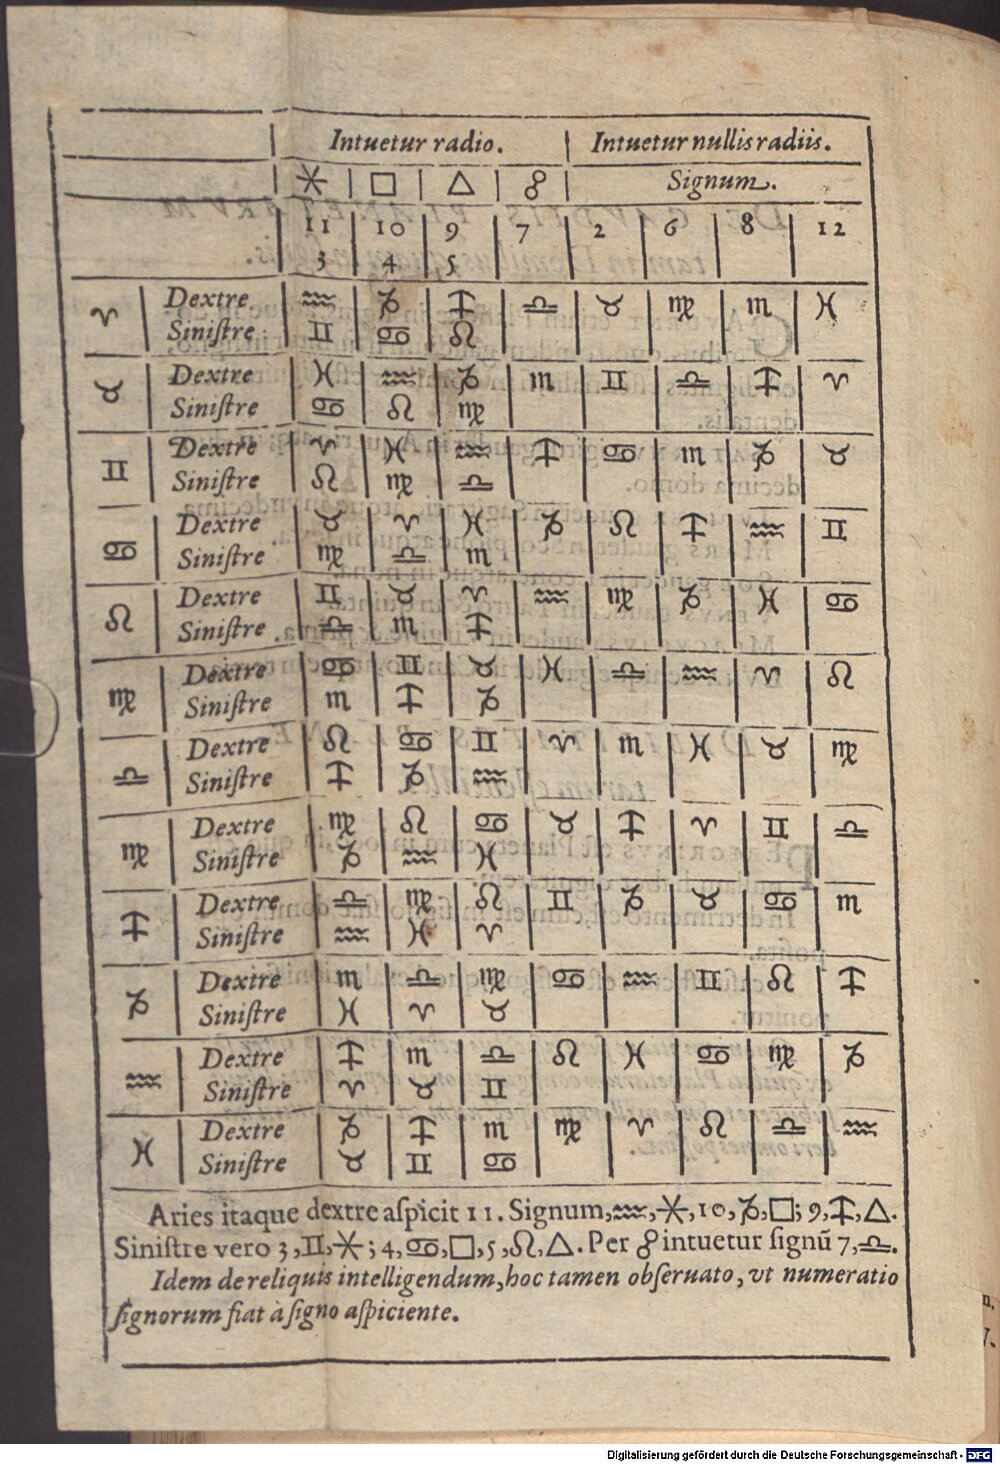 Intuetur radio. Intuetur nullis radiis.
⚹ □ △ ☍ Signum.
11 10 9 7 2 6 8 12
3 4 5
♈ Dextre ♒ ♑ ♐ ♎ ♉ ♍ ♏ ♓
Siniſtre ♊ ♋ ♌
♉ Dextre ♓ ♒ ♑ ♏ ♊ ♎ ♐ ♈
Siniſtre ♋ ♌ ♍
♊ Dextre ♈ ♓ ♒ ♐ ♋ ♏ ♑ ♉
Siniſtre ♌ ♍ ♎
♋ Dextre ♉ ♈ ♓ ♑ ♌ ♐ ♒ ♊
Siniſtre ♍ ♎ ♏
♌ Dextre ♊ ♉ ♈ ♒ ♍ ♑ ♓ ♋
Siniſtre ♎ ♏ ♐
♍ Dextre ♋ ♊ ♉ ♓ ♎ ♒ ♈ ♌
Siniſtre ♏ ♐ ♑
♎ Dextre ♌ ♋ ♊ ♈ ♏ ♓ ♉ ♍
Siniſtre ♐ ♑ ♒
♍ Dextre ♍ ♌ ♋ ♉ ♐ ♈ ♊ ♎
Siniſtre ♑ ♒ ♓
♐ Dextre ♎ ♍ ♌ ♊ ♑ ♉ ♋ ♏
Siniſtre ♒ ♓ ♈
♑ Dextre ♏ ♎ ♍ ♋ ♒ ♊ ♌ ♐
Siniſtre ♓ ♈ ♉
♒ Dextre ♐ ♏ ♎ ♌ ♓ ♋ ♍ ♑
Siniſtre ♈ ♉ ♊
♓ Dextre ♑ ♐ ♏ ♍ ♈ ♌ ♎ ♒
Siniſtre ♉ ♊ ♋
Aries itaque dextre aſpicit 11. Signum, ♒, ⚹, 10, ♑, □; 9, ♐, △.
Siniſtre vero 3, ♊, ⚹; 4, ♋, □, 5, ♌, △. Per ☍ intuetur ſignū 7, ♎.
Idem de reliquis intelligendum, hoc tamen obſeruato, vt numeratio
ſignorum fiat à ſigno aſpiciente.
Digitalisierung gefördert durch die Deutsche Forschungsgemeinschaft - DFG